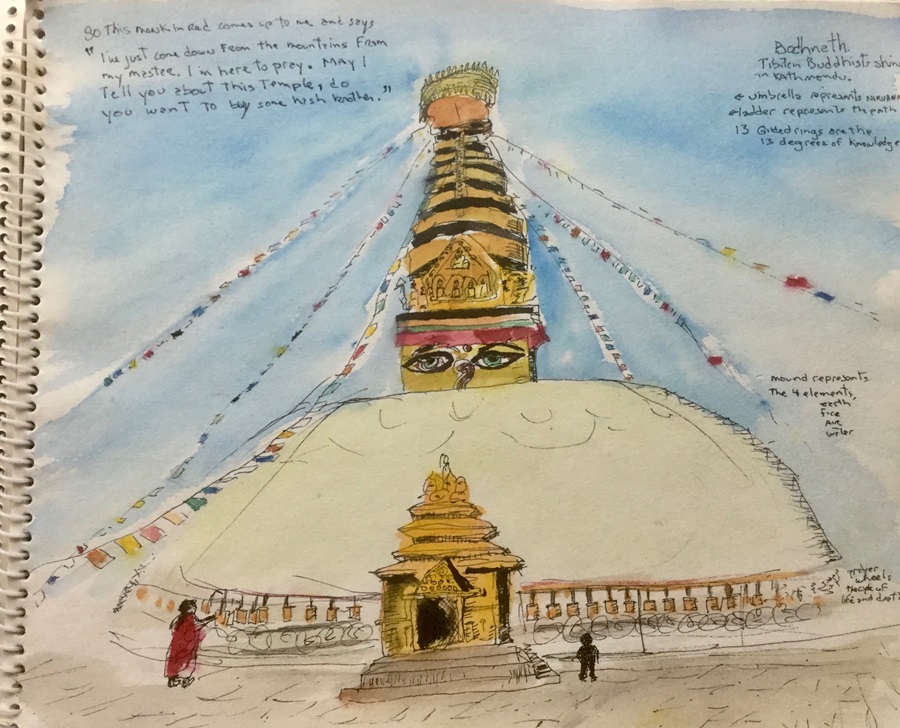 So This monk in Red comes up to me and says
"I've just come down From the mountins From
my master. I'm here to pray. MAY I
Tell you about This Temple, do
you want To buy some hash brother."
Bodhneth.
Tibiten Buddhists shrin
in Kathmendu.
← umbrella represents NIRVANA
← ladder represents the path
13 Gilded rings are the
13 degrees of knowledge
mound represants
The 4 elements,
earth
fire
AIR
water
Prayer
wheels
life and